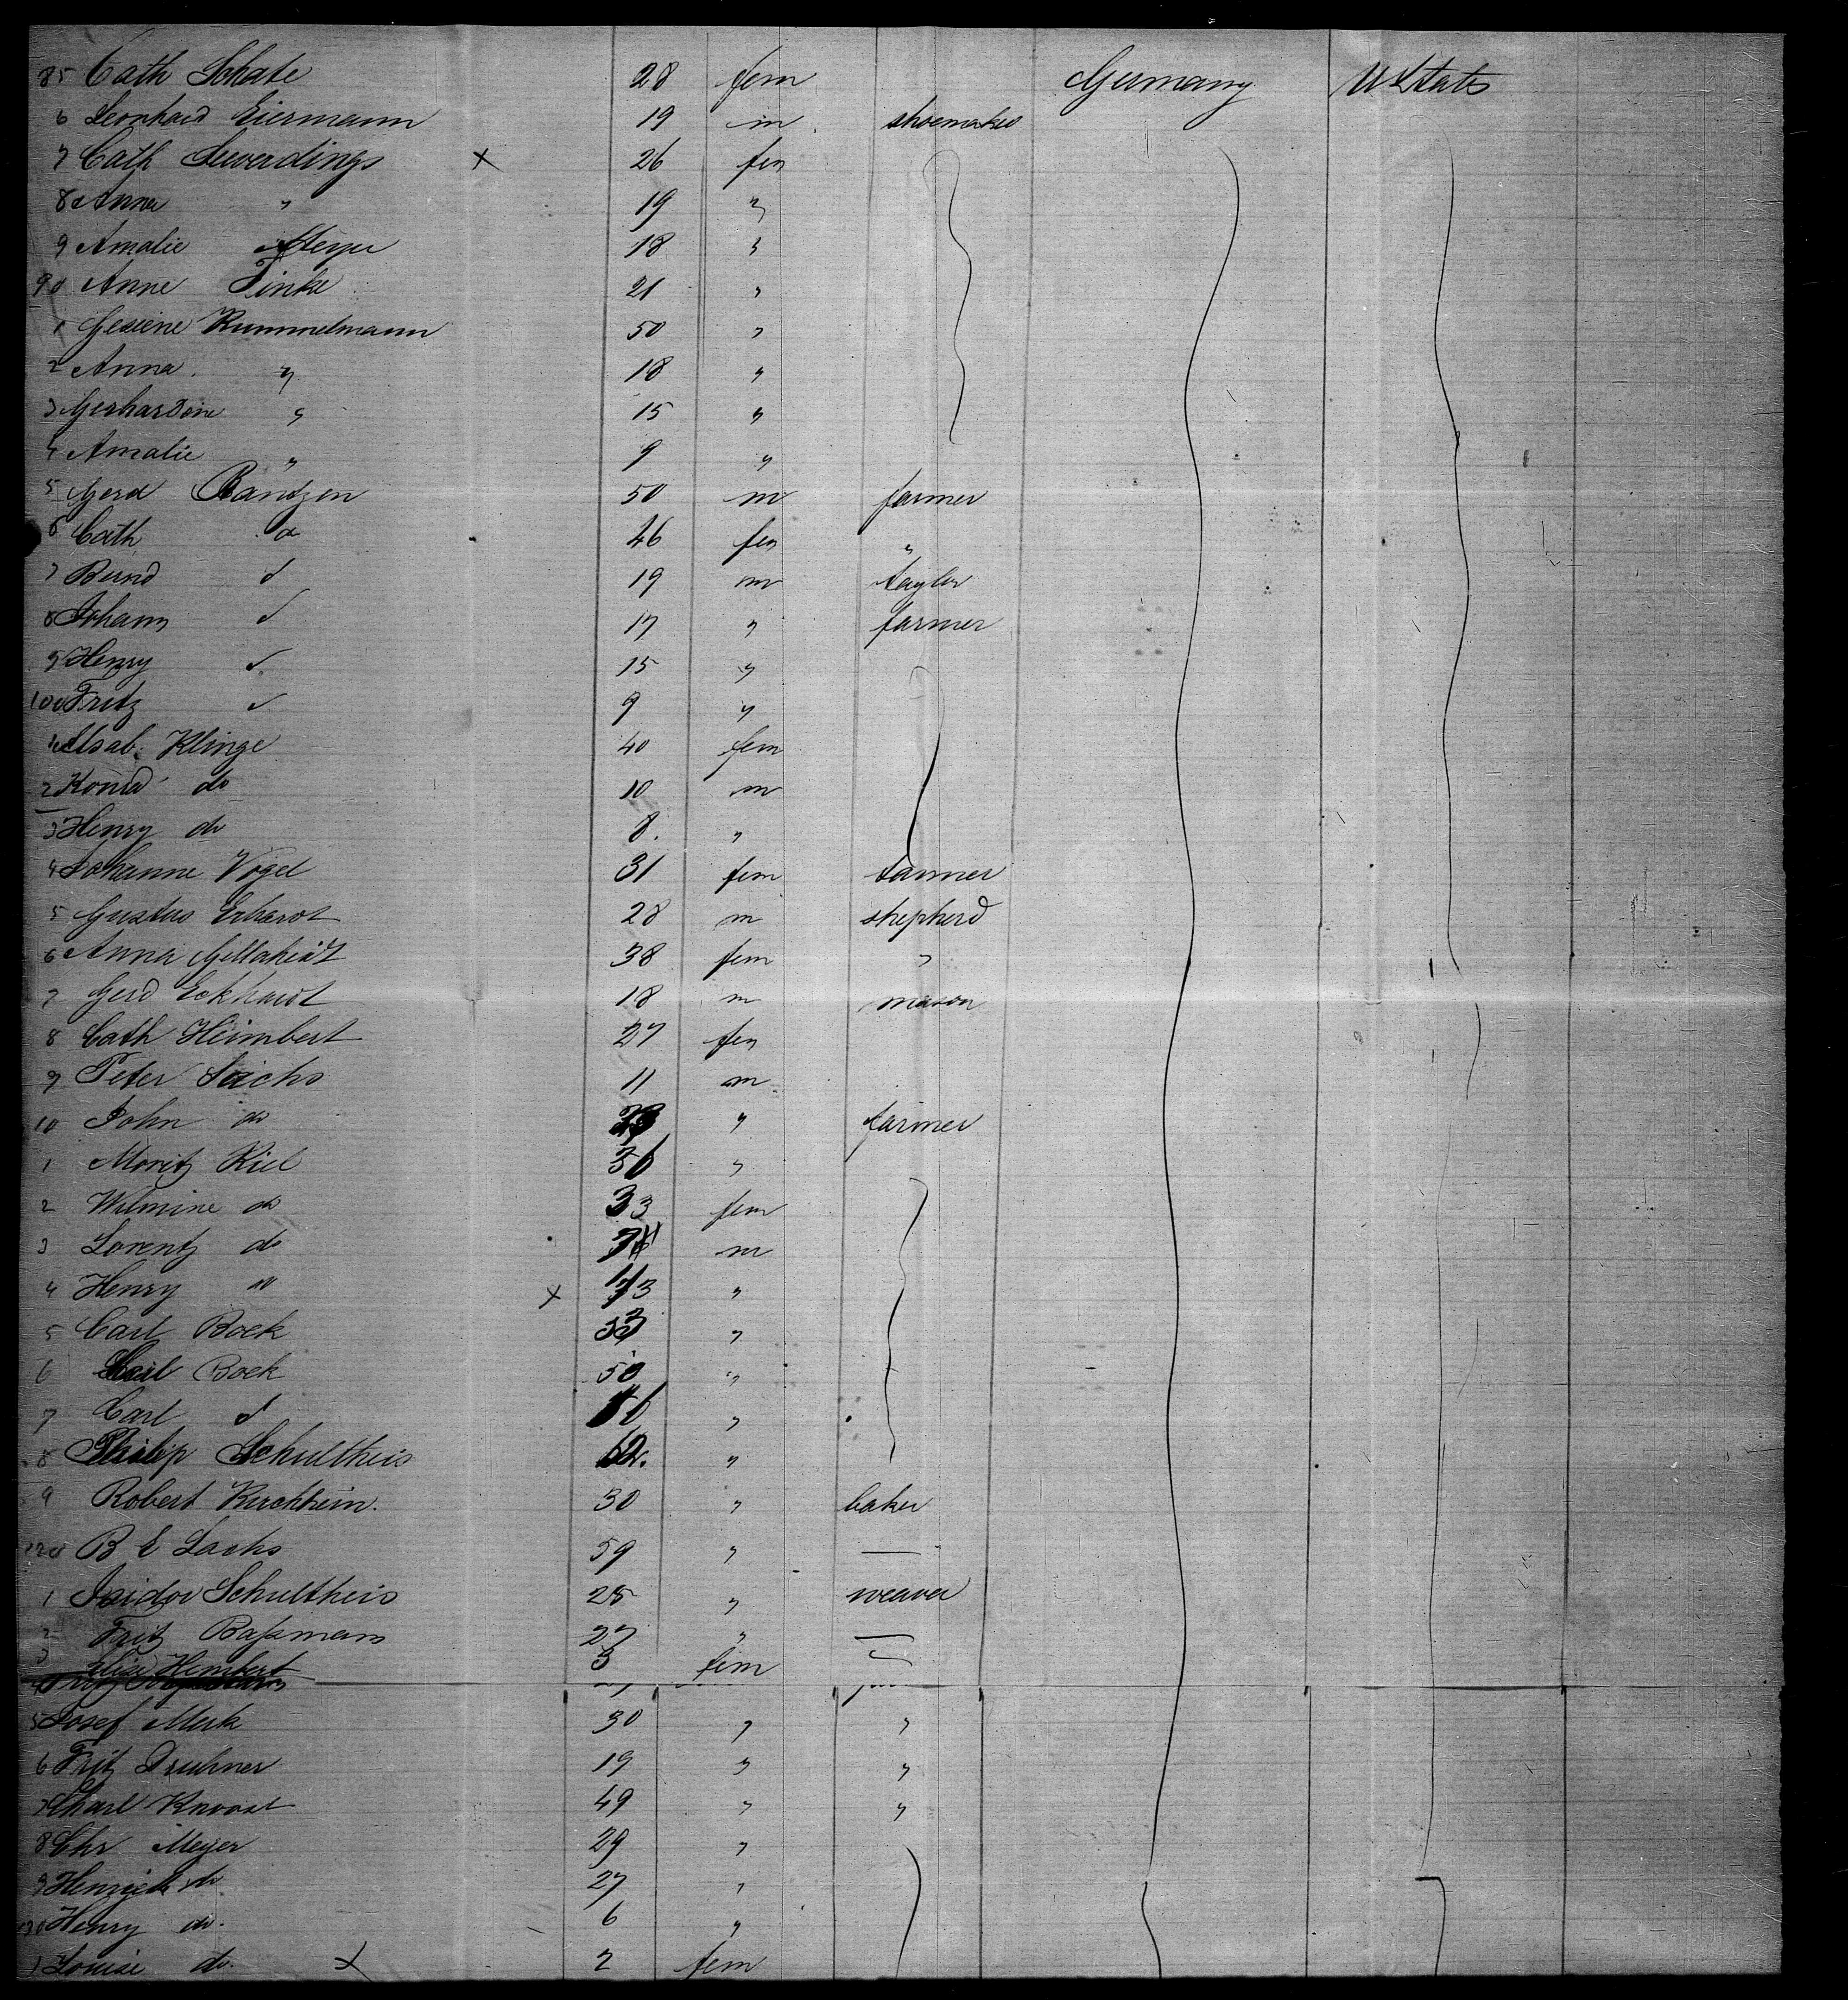 85 Cath Schate 28 fem Germany U States
6 Leonhard Eiermann 19 m shoemaker
7 Cath Siewerdings x 26 fem
8 Anna " 19 "
9 Amalie Meyer 18 "
90 Anne Finke 21 "
1 Gesiene Rummelmann 50 "
2 Anna " 18 "
3 Gerhardine " 15 "
4 Amalie " 9 "
5 Gerd Bantzen 50 m farmer
6 Cath d 46 fem "
7 Bernd d 19 m taylor
8 Johann d 17 " farmer
9 Henry d 15 "
100 Fritz d 9 "
1 Elsab. Klinge 40 fem
2 Konrd do 10 m
3 Henry do 8. "
4 Johanne Vogel 31 fem farmer
5 Gustav Erhardt 28 m shepherd
6 Anna 38 fem "
7 Gerd Eckhardt 18 m mason
8 Cath Heimbert 27 fem
9 Peter Sachs 11 m
10 John do " farmer
1 Moritz Kiel 36 "
2 Wilmine do 33 fem
3 Lorentz do m
4 Henry do x "
5 Carl Bock 33 "
6 Bock 50 "
7 Carl d "
8 Philip Schultheis "
9 Robert Kirchhein. 30 " baker
120 B E Sachs 59 " —
1 Isidor Schultheis 25 " weaver
2 Fritz Baßmann 27 " —
3 Elise Heimbert 3 fem
4
5 Josef Merk 30 " "
6 Fritz Druhner 19 " "
7 Charl Knoost 49 " "
8 Chr Meyer 29 "
9 Henriett do 27 "
130 Henry do. 6 "
1 Louise do. x 2 fem